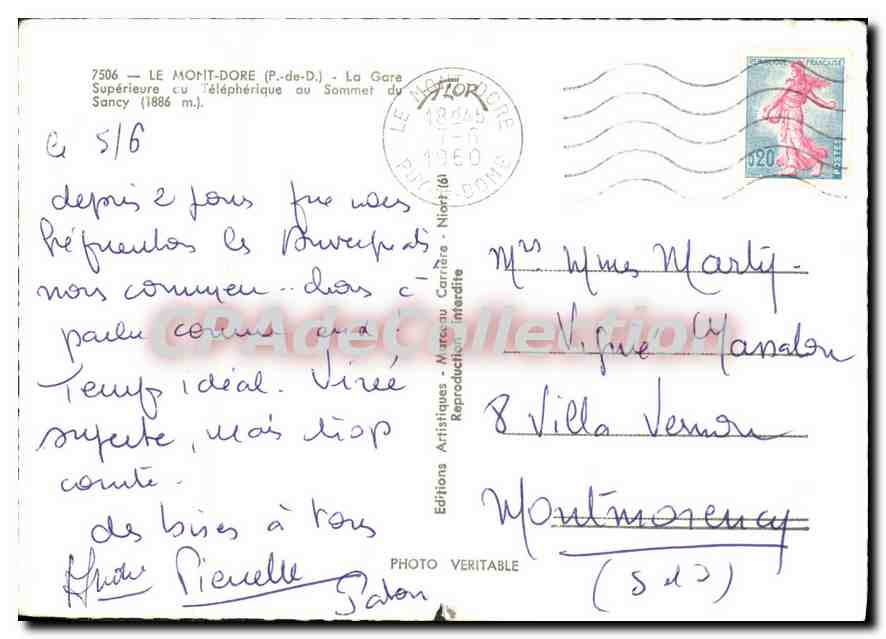 7506 — LE MONT-DORE (P.-de-D.) - La Gare
Supérieure du Téléphérique au Sommet du
Sancy (1886 m.).
le 5/6
depuis 2 jours que nous
fréquentons les Auvergnats,
nous commençons à
parler comme eux!
Temps idéal. Virée
superbe, mais trop
courte.
des bises à tous
André Pierrette
LE MONT-DORE
18H45
7-6
1960
PUY-DE-DOME
FLOR
Editions Artistiques - Marceau Carrière - Niort (6)
Reproduction interdite
PHOTO VERITABLE
REPUBLIQUE FRANÇAISE
0,20
POSTES
Mrs Mmes Marty-
Vigne Massalou
8 Villa Vernon
Montmorency
(S et O)
CPAdeCollection.com